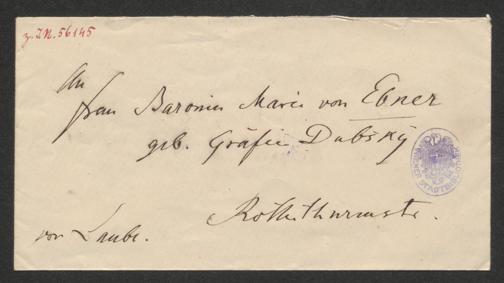 z. I.N. 56145
An
Frau Baronin Marie von Ebner
geb. Gräfin Dubský
Rothethurmstr.
von Laube.